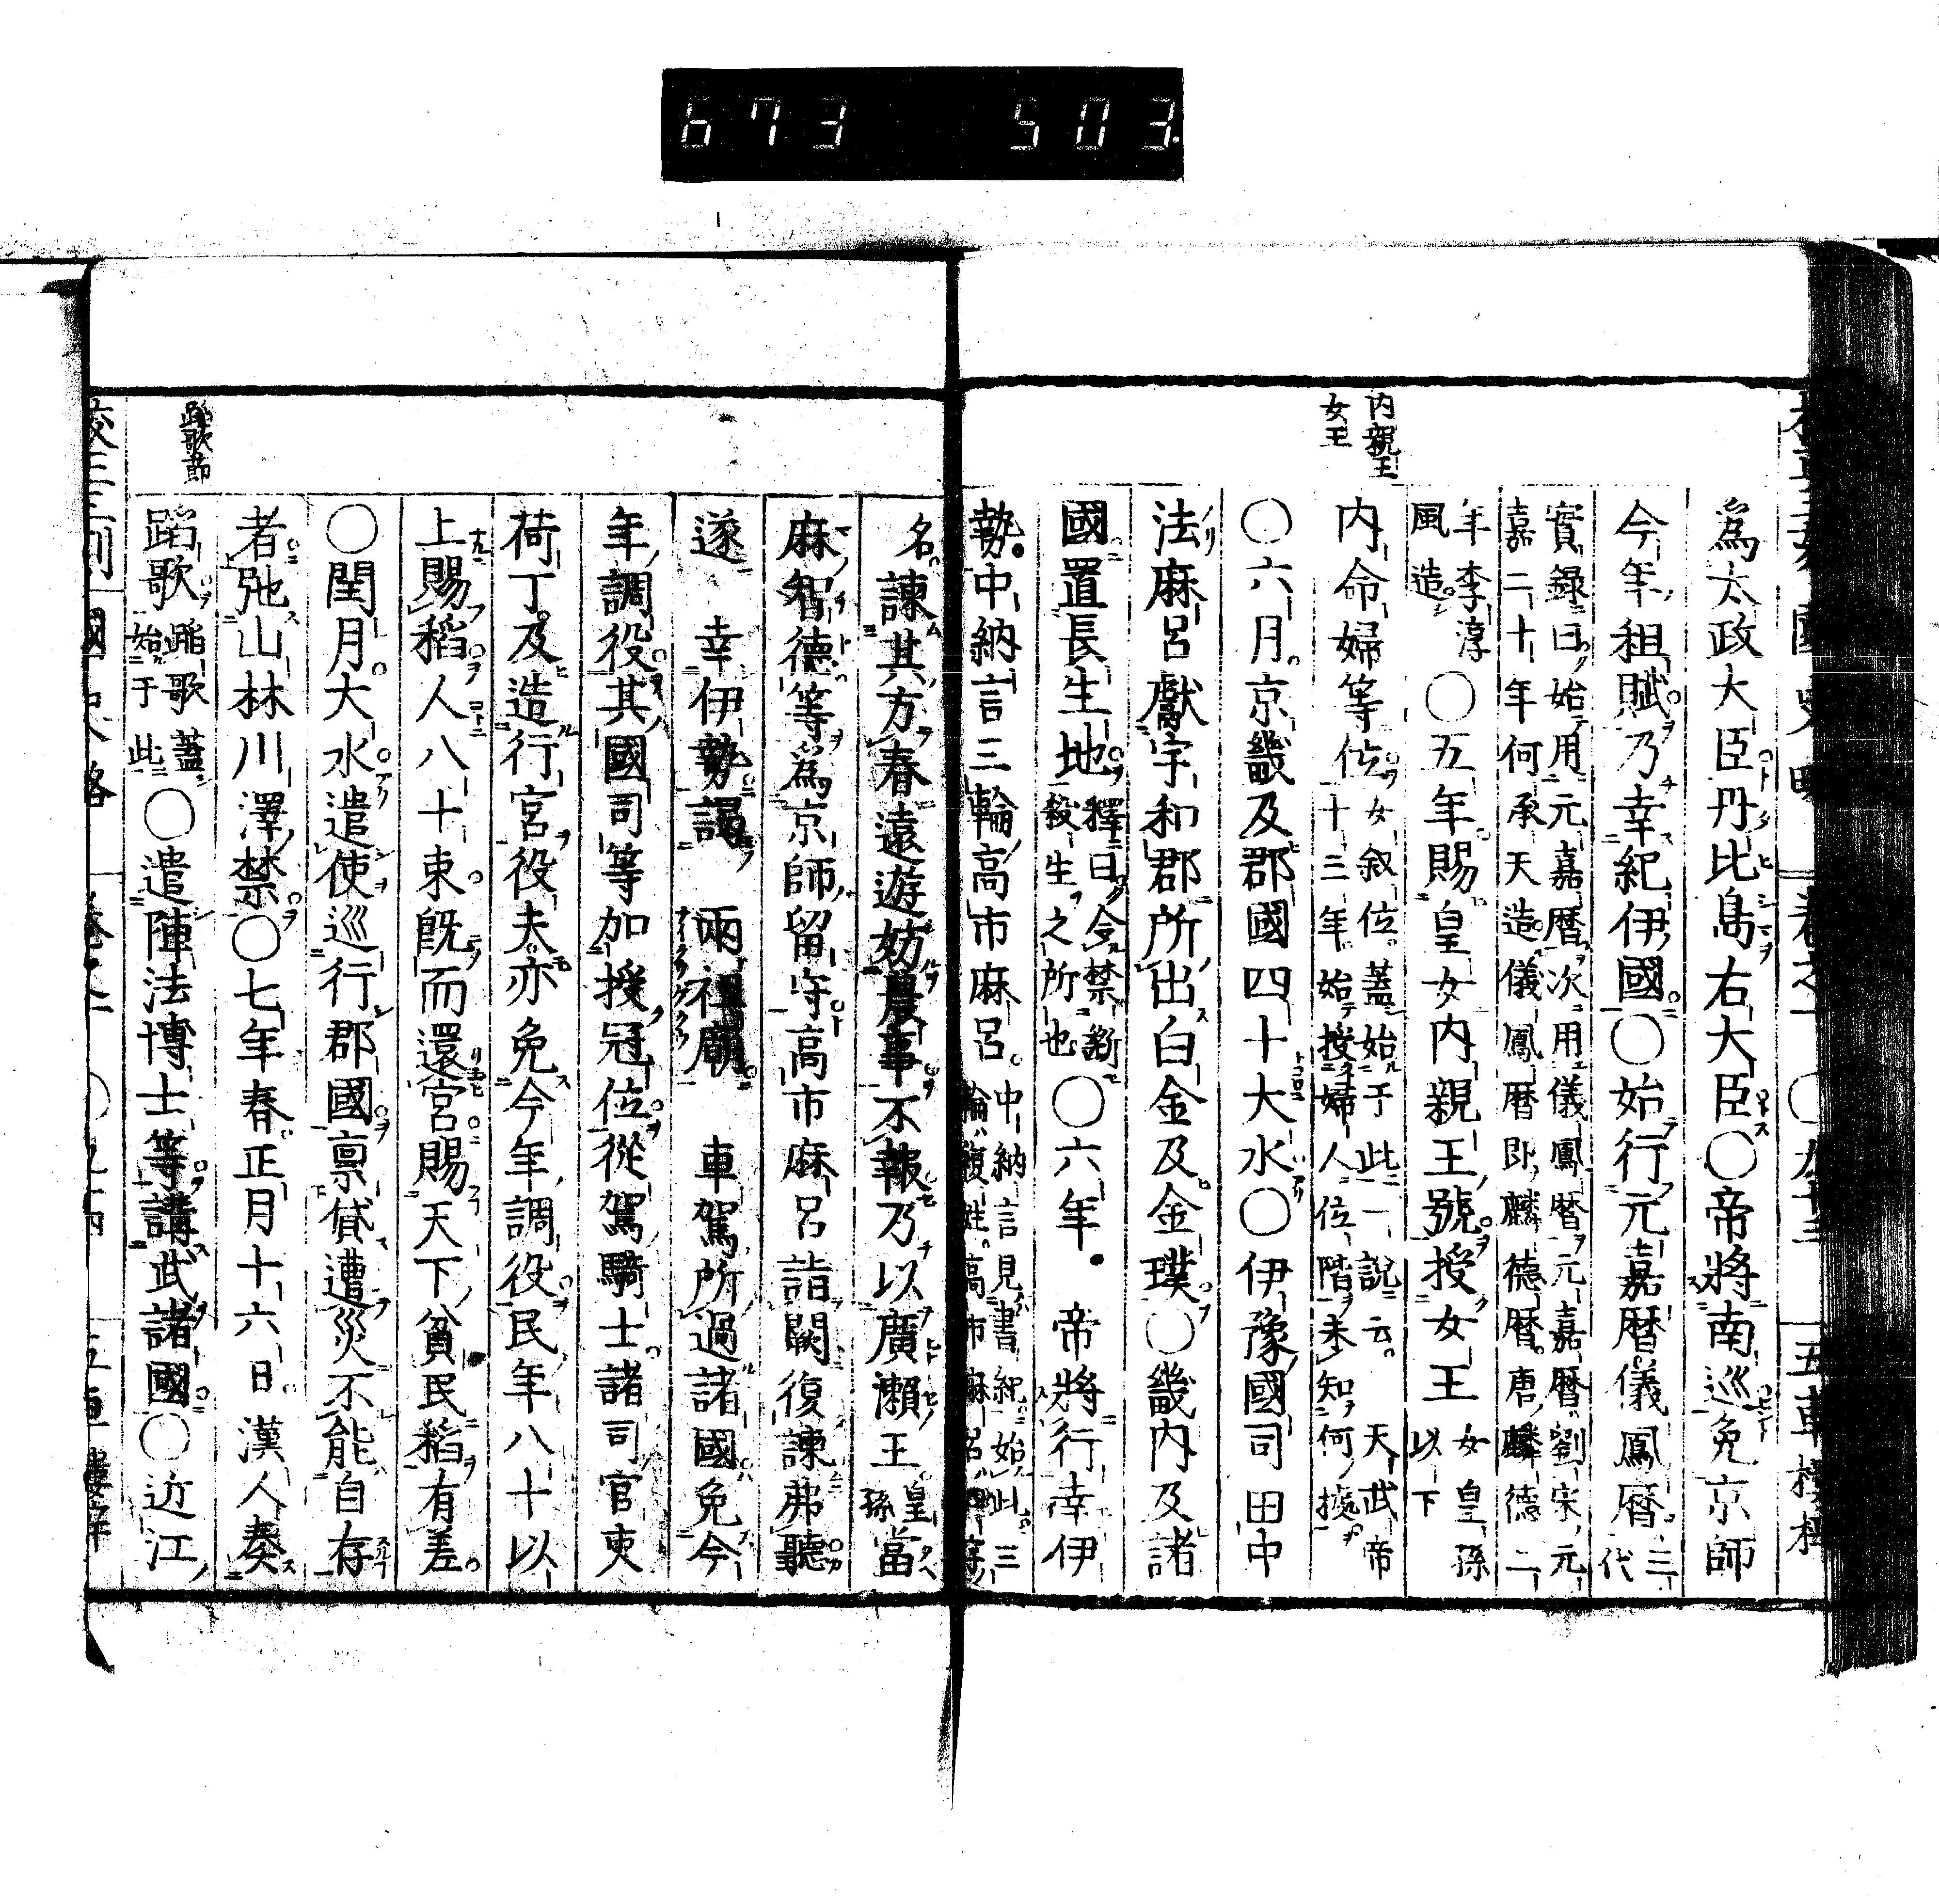 673 503
内親王
女王
爲太政大臣丹比島右大臣〇帝將南巡免京師
今年租賦乃幸紀伊國〇始行元嘉暦儀鳳暦三代
實録曰始用元嘉暦次用儀鳳暦元嘉暦劉宋元
嘉二十年何承天造儀鳳暦即麟德暦唐麟德二
年李淳
風造〇五年賜皇女内親王號授女王女皇孫以下
内命婦等位女叙位蓋始于此一説云天武帝
十三年始授婦人位階未知何據
〇六月京畿及郡國四十大水〇伊豫國司田中
法麻呂獻宇和郡所出白金及金璞〇畿内及諸
國置長生地釋曰令禁斷殺生之所也〇六年帝將行幸伊
勢中納言三輪高市麻呂中納言見書紀始此三
輪複姓高市麻呂四字
名諫其方春遠遊妨農事不報乃以廣瀬王皇孫當
麻智德等爲京師留守高市麻呂詣闕復諫弗聽
遂幸伊勢謁兩祖廟車駕所過諸國免今
年調役其國司等加授冠位從駕騎士諸司官吏
荷丁及造行宮役夫亦免今年調役民年八十以
上賜稻人八十束既而還宮賜天下貧民稻有差
〇閏月大水遣使巡行郡國禀貸遭災不能自存
者弛山林川澤禁〇七年春正月十六日漢人奏
蹈歌蹈歌蓋始于此〇遣陣法博士等講武諸國〇近江
蹈歌節